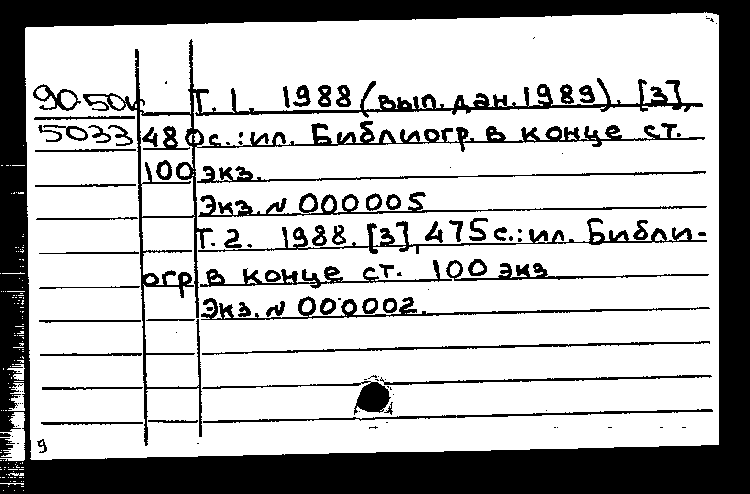 90-504 Т. 1. 1988 (вып. дан. 1989). [3],
5033 480 с.: ил. Библиогр. в конце ст.
100 экз.
Экз. N 000005
Т. 2. 1988. [3], 475 с.: ил. Библи-
огр в конце ст. 100 экз
Экз. N 000002.
9